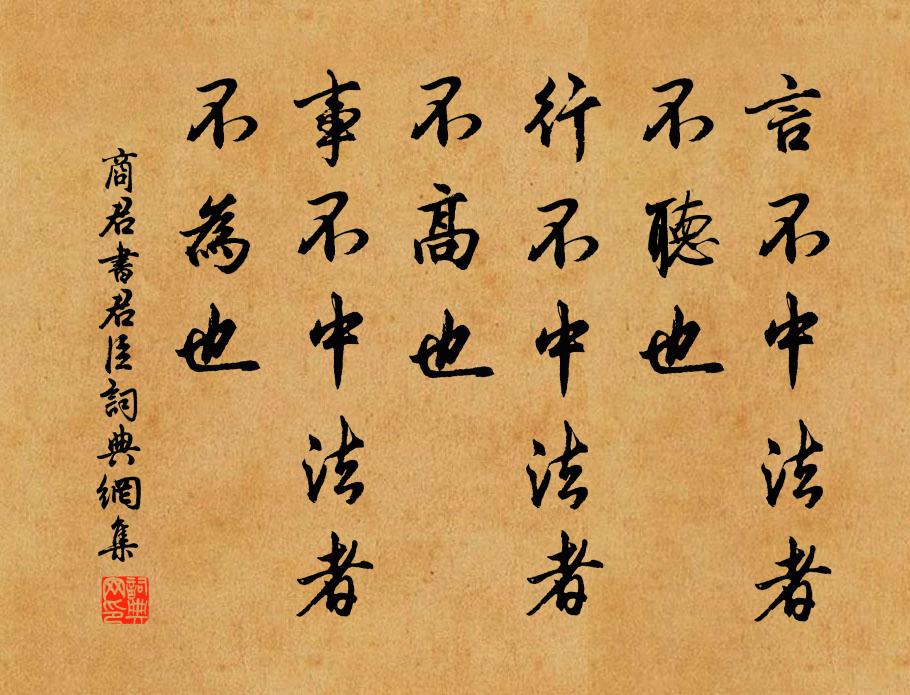 言不中法者
不聽也
行不中法者
不高也
事不中法者
不為也
商君書君臣詞典網集
詞典
网印